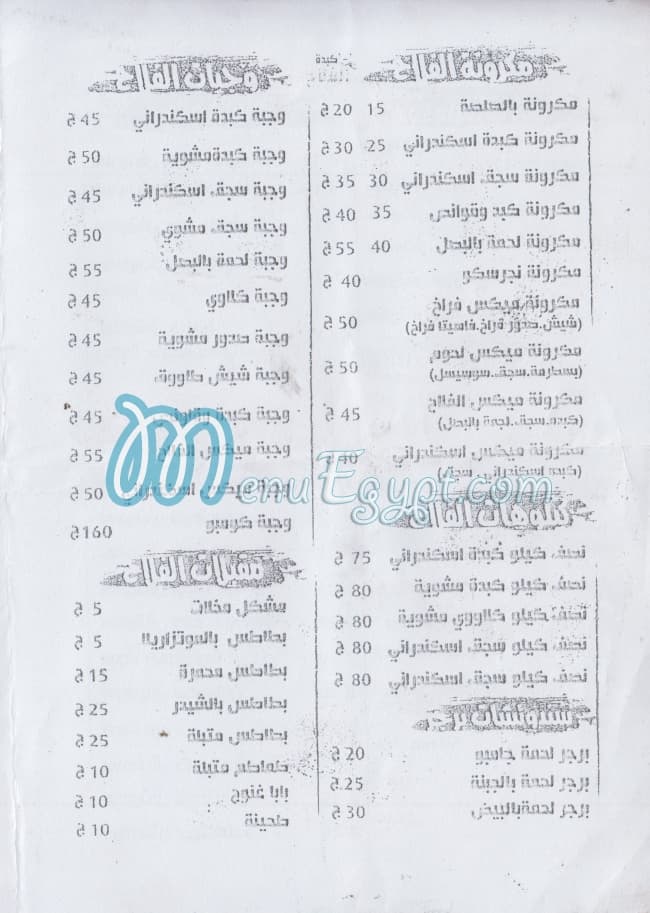 مكرونة الفلاح
كبدة
مكرونة بالصلصة 15 20 ج
مكرونة كبدة اسكندراني 25 30 ج
مكرونة سجق اسكندراني 30 35 ج
مكرونة كبد وقوانص 35 40 ج
مكرونة لحمة بالبصل 40 55 ج
مكرونة نجرسكو 40 ج
مكرونة ميكس فراخ 50 ج
(شيش.صدور فراخ.فاهيتا فراخ)
مكرونة ميكس لحوم 50 ج
(بسطرمة.سجق.سوسيسل)
مكرونة ميكس الفلاح 45 ج
(كبده.سجق.لحمة بالبصل)
مكرونة ميكس اسكندراني 40 ج
(كبدة اسكندراني. سجق)
كيلوهات الفلاح
نصف كيلو كبدة اسكندراني 75 ج
نصف كيلو كبدة مشوية 80 ج
نصف كيلو كالووي مشوية 80 ج
نصف كيلو سجق اسكندراني 80 ج
نصف كيلو سجق اسكندراني 80 ج
برجر لحمة جامبو 20 ج
برجر لحمة بالجبنة 25 ج
برجر لحمةبالبيض 30 ج
وجبات الفلاح
وجبة كبدة اسكندراني 45 ج
وجبة كبدةمشوية 50 ج
وجبة سجق اسكندراني 45 ج
وجبة سجق مشوي 50 ج
وجبة لحمة بالبصل 55 ج
وجبة كلاوي 45 ج
وجبة صدور مشوية 45 ج
وجبة شيش طاووق 45 ج
وجبة كبدة وقوانص 45 ج
وجبة ميكس الفلاح 55 ج
وجبة ميكس اسكندراني 50 ج
وجبة كومبو 160 ج
مقبلات الفلاح
مشكل مخلات 5 ج
بطاطس بالموتزاريلا 5 ج
بطاطس محمرة 15 ج
بطاطس بالشيدر 25 ج
بطاطس متبلة 25 ج
طماطم متبلة 10 ج
بابا غنوج 10 ج
طحينة 10 ج
MenuEgypt.com